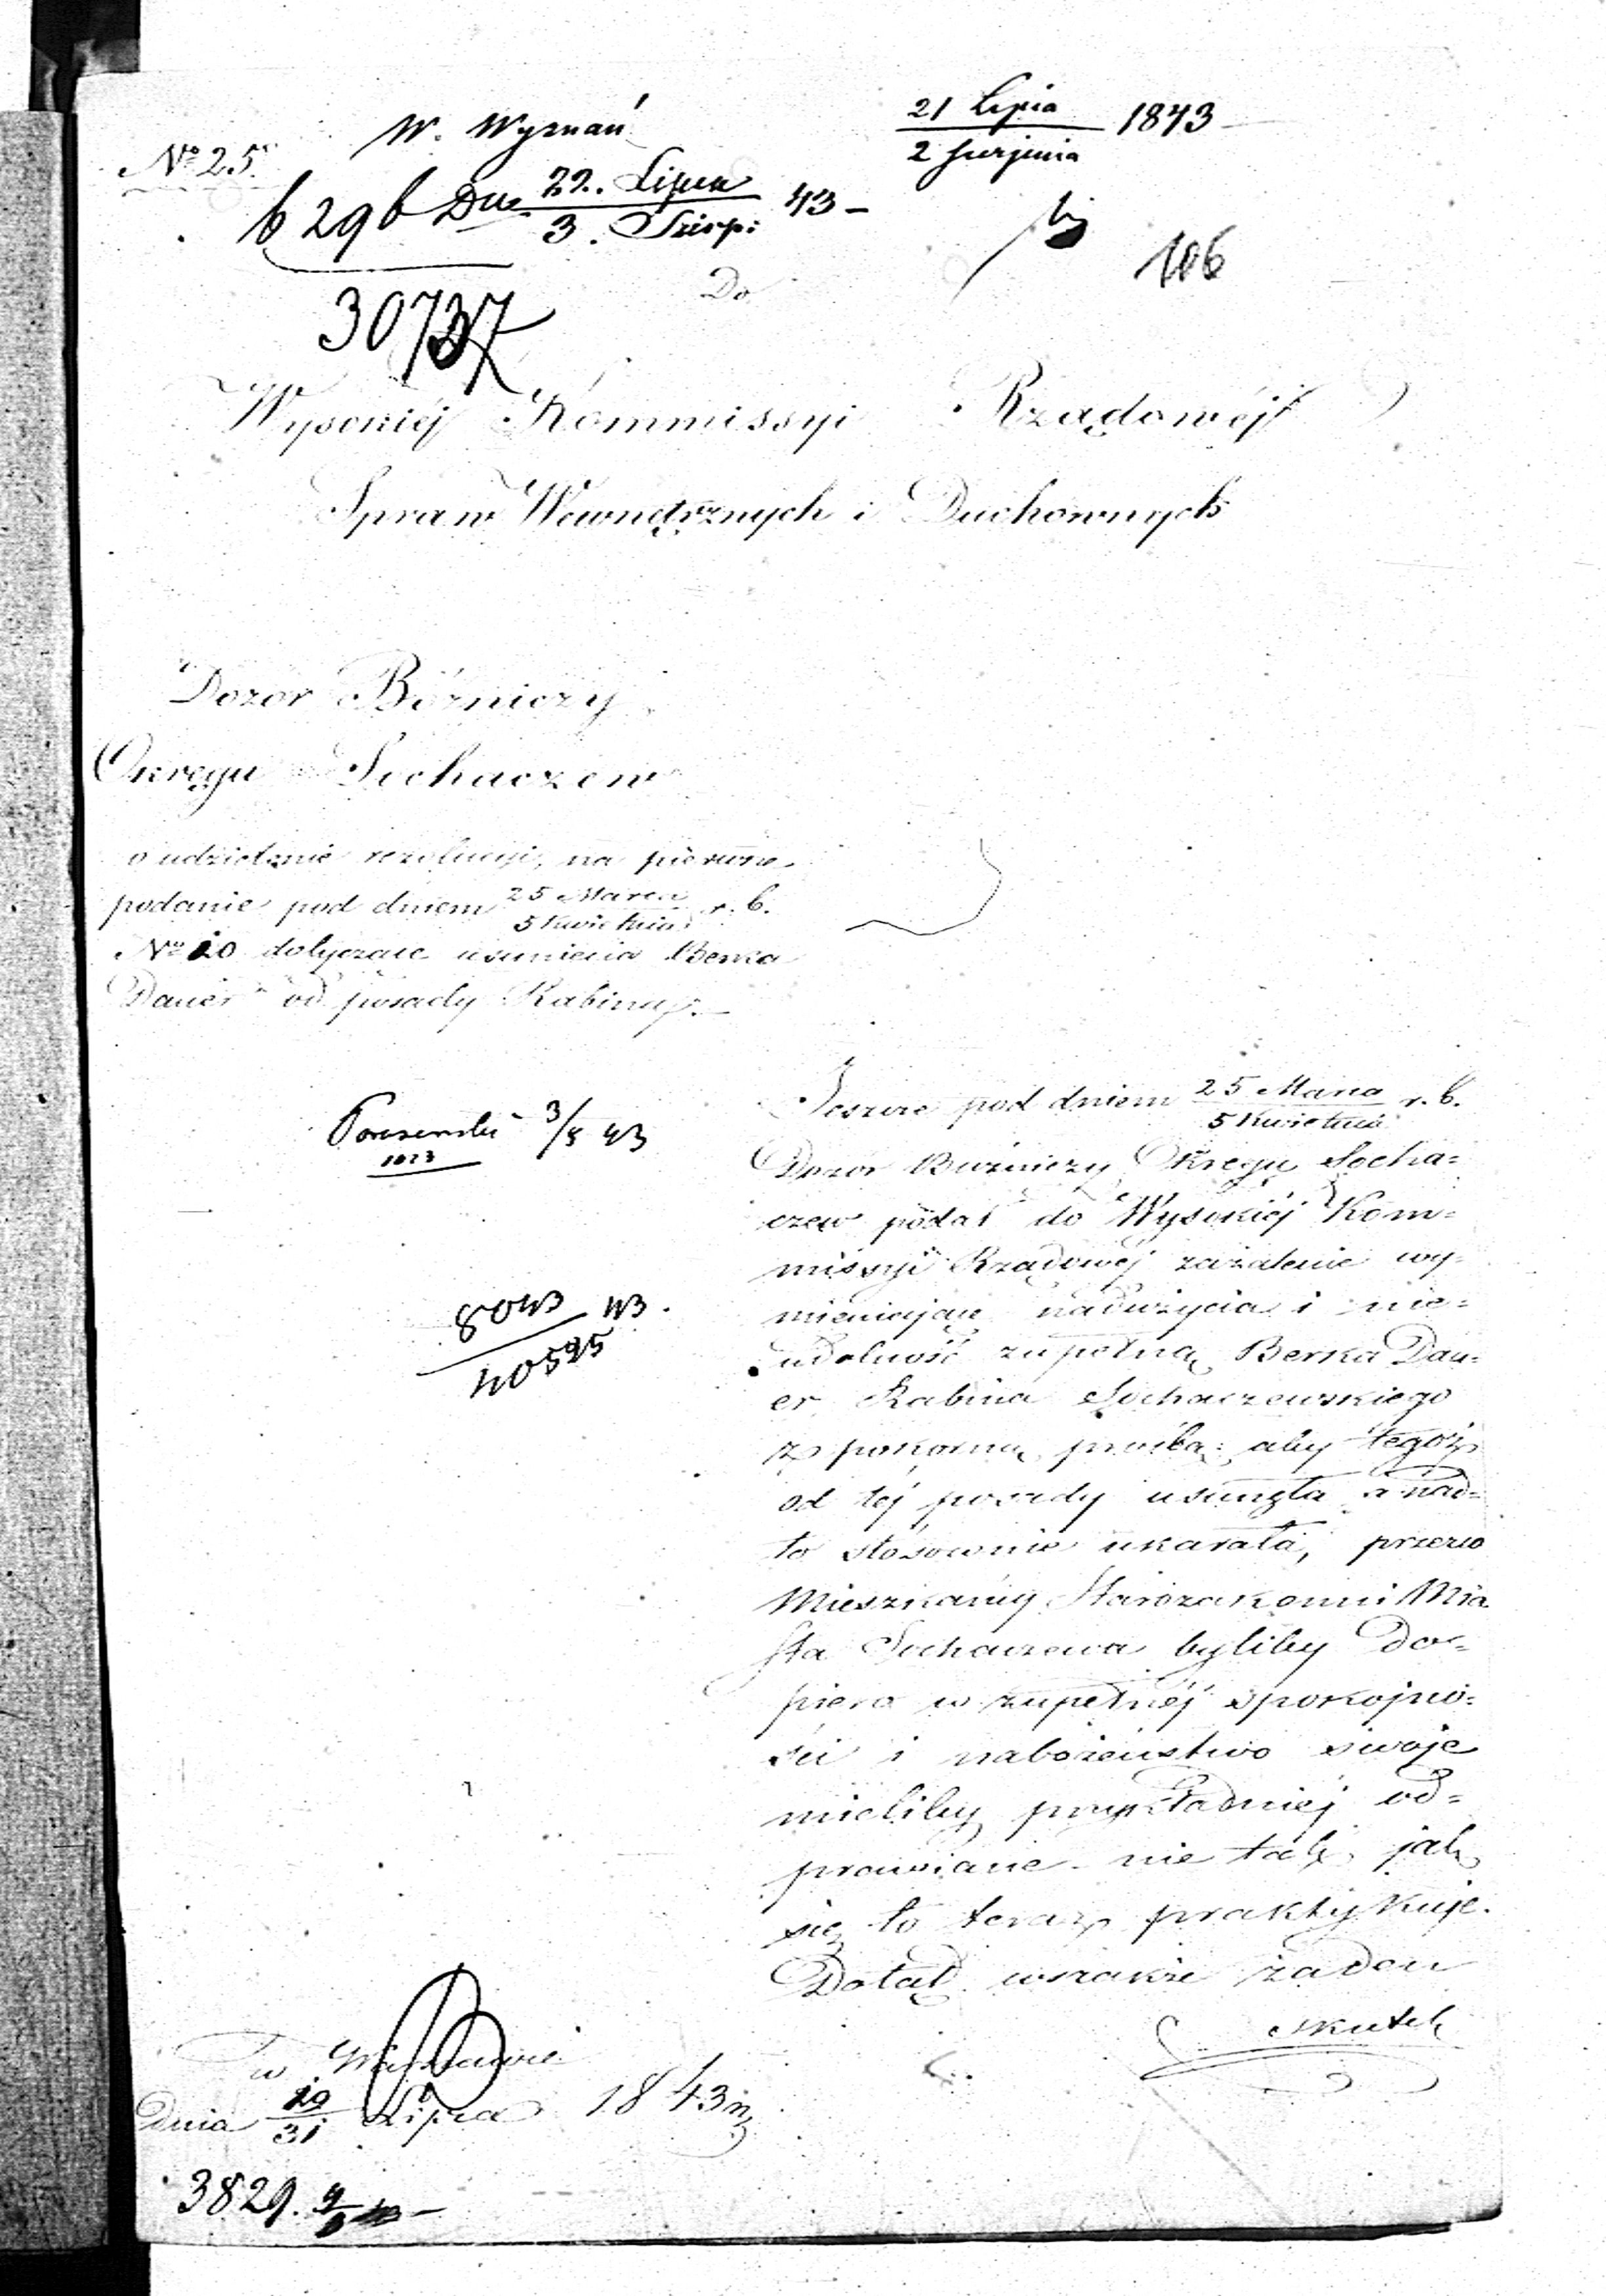 No 25.
W. Wyznań
21 Lipca / 2 Sierpnia 1843
6296 Dn. 22. Lipca / 3. Sierp: 43 -
106
30737
Do
Wysokiéj Kommissyi Rządowéj
Spraw Wewnętrznych i Duchownych
Dozór Bóżniczy
Okręgu Sochaczew
o udzielenie rezolucyi, na pierwsze
podanie pod dniem 25 Marca / 5 Kwietnia r. b.
No 20 dotyczące usunięcia Berka
Dauer od posady Rabina.
3/8 43
1023
8043 / 40595 43.
Jeszcze pod dniem 25 Marca / 5 Kwietnia r. b.
Dozór Bużniczy Okręgu Socha=
czew podał do Wysokiéj Kom=
missyi Rządowéj zażalenie wy=
mieniając nadużycia i nie=
udolność zupełną Berka Dau=
er Rabina Sochaczewskiego
z pokorną prośbą: aby tegoż
od téj posady usunęła a nad=
to stósownie ukarała, przezco
Mieszkańcy Starozakonni Mia
sta Sochaczewa byliby do=
piero w zupełnéj spokojno=
ści i nabożeństwo swoje
mieliby przykładniéj od=
prawiane nie tak, jak
się to teraz praktykuje.
Dotąd wszakże żaden
skutek
w Warszawie
Dnia 19 / 31 Lipca 1843 r.
3829.